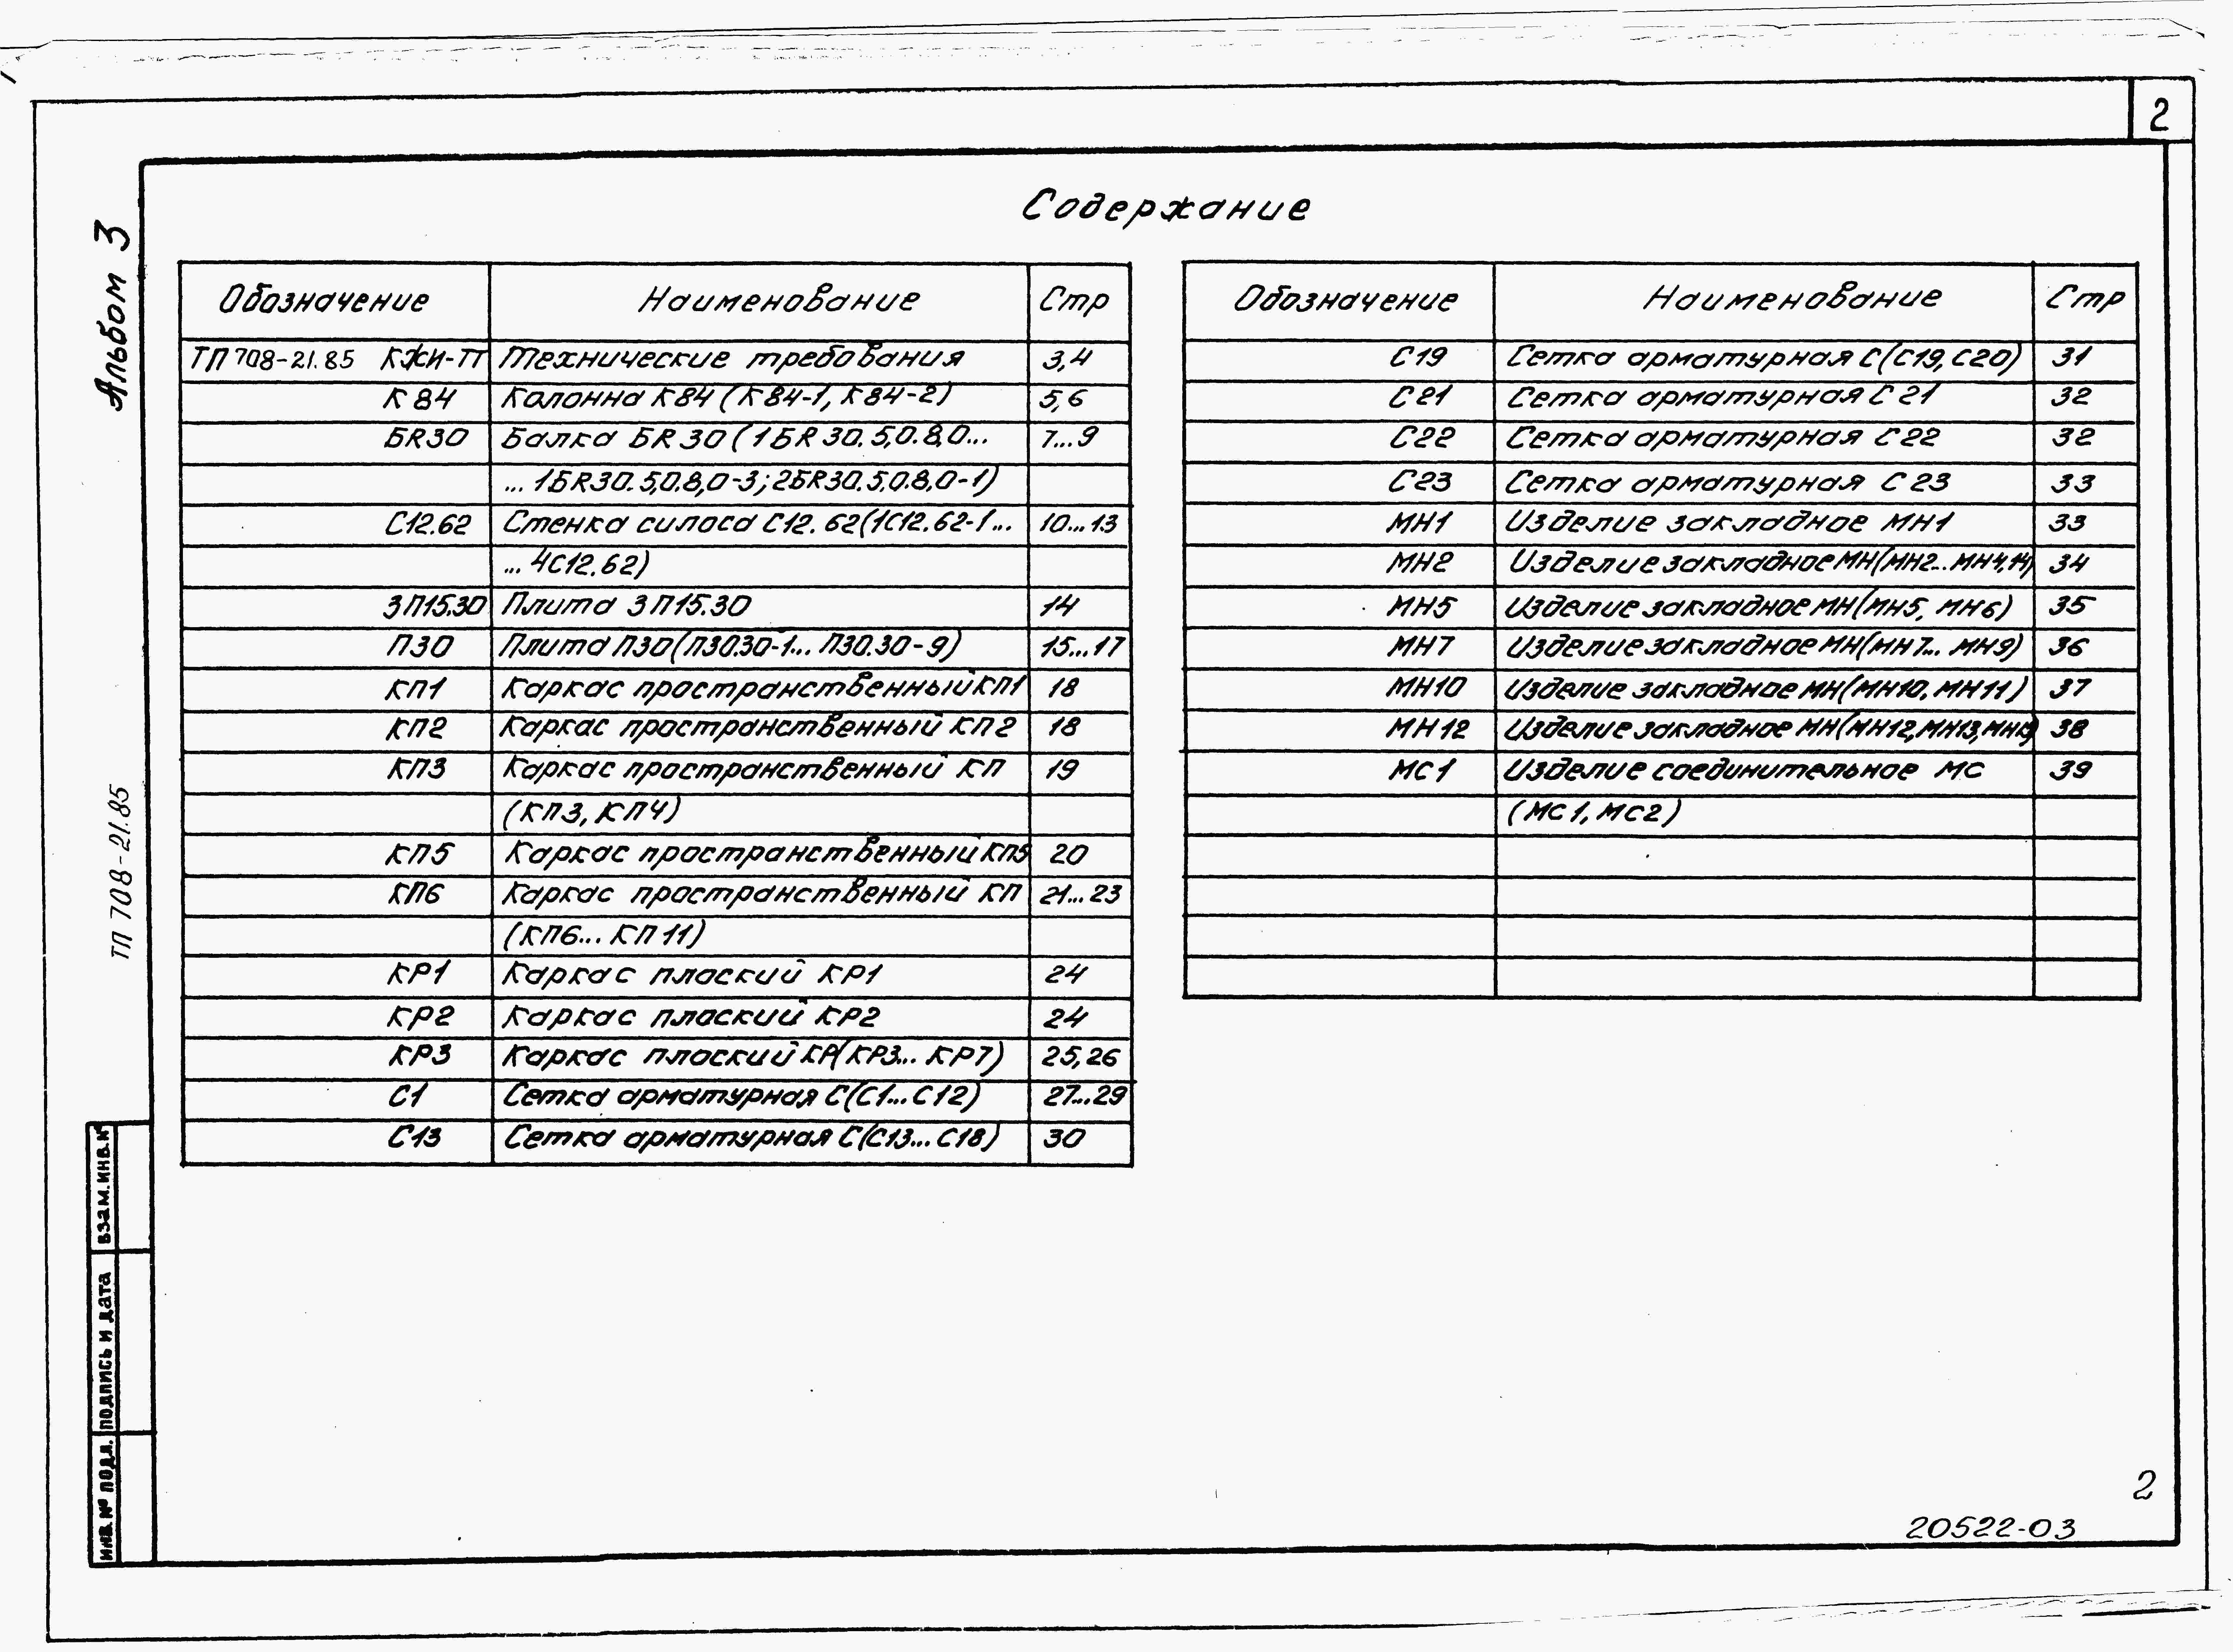 2
Альбом 3
ТП 708-21.85
Содержание
Обозначение Наименование Стр
ТП 708-21.85 КЖИ-ТТ Технические требования 3,4
К84 Колонна К84 (К84-1, К84-2) 5,6
БR30 Балка БR30 (1БR30.5,0.8,0... 7...9
... 1БR30.5,0.8,0-3; 2БR30.5,0.8,0-1)
С12.62 Стенка силоса С12.62(1С12.62-1... 10...13
... 4С12.62)
3П15.30 Плита 3П15.30 14
П30 Плита П30(П30.30-1... П30.30-9) 15...17
КП1 Каркас пространственный КП1 18
КП2 Каркас пространственный КП2 18
КП3 Каркас пространственный КП 19
(КП3, КП4)
КП5 Каркас пространственный КП5 20
КП6 Каркас пространственный КП 21...23
(КП6... КП11)
КР1 Каркас плоский КР1 24
КР2 Каркас плоский КР2 24
КР3 Каркас плоский КР(КР3... КР7) 25,26
С1 Сетка арматурная С(С1...С12) 27...29
С13 Сетка арматурная С(С13...С18) 30
Обозначение Наименование Стр
С19 Сетка арматурная С(С19, С20) 31
С21 Сетка арматурная С21 32
С22 Сетка арматурная С22 32
С23 Сетка арматурная С23 33
МН1 Изделие закладное МН1 33
МН2 Изделие закладное МН(МН2...МН4,14) 34
МН5 Изделие закладное МН(МН5, МН6) 35
МН7 Изделие закладное МН(МН7... МН9) 36
МН10 Изделие закладное МН(МН10, МН11) 37
МН12 Изделие закладное МН(МН12,МН13, 38
МС1 Изделие соединительное МС 39
(МС1, МС2)
взам.инв.№
подпись и дата
инв.№ подл.
2
20522-03